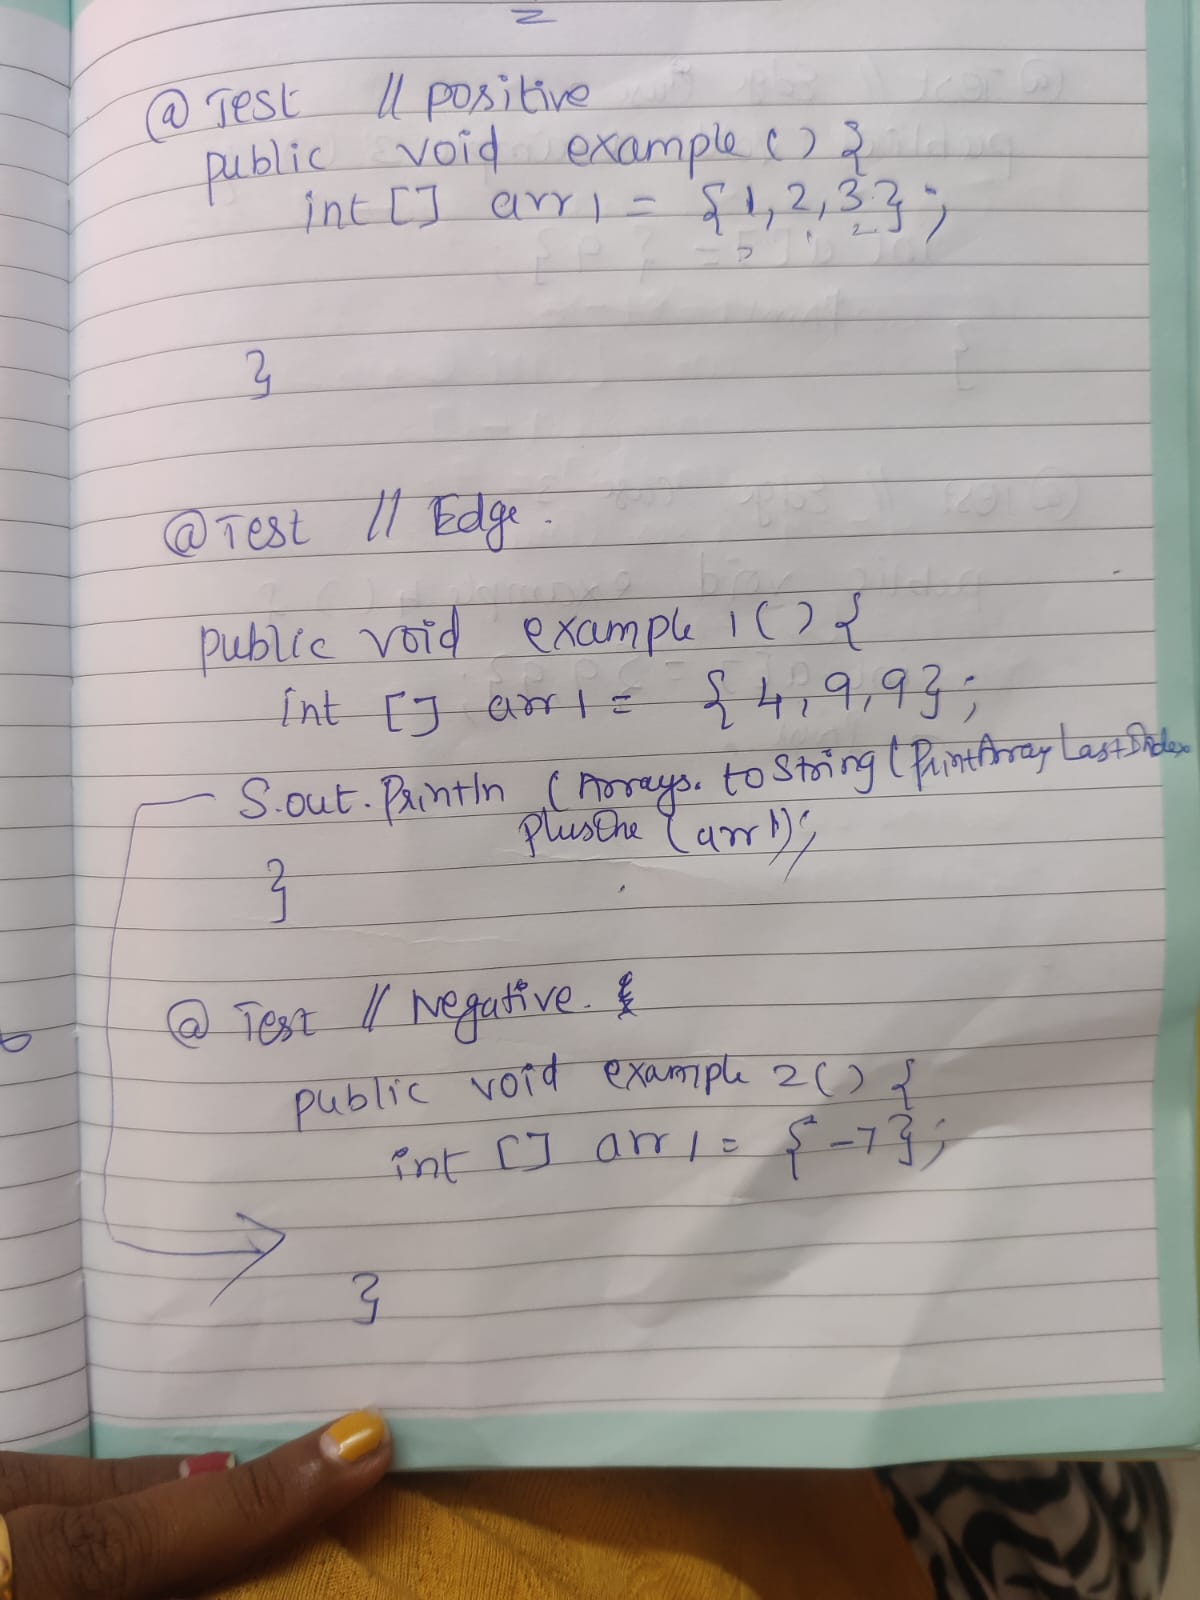 @Test // positive
public void example () {
int [] arr1 = {1, 2, 3};
0 1 2
}
@Test // Edge.
public void example 1 () {
int [] arr1 = {4, 9, 9};
S.out.Println (Arrays.toString (PrintArrayLastIndex
PlusOne (arr1));
}
@Test // Negative.
public void example 2 () {
int [] arr1 = {-7};
}